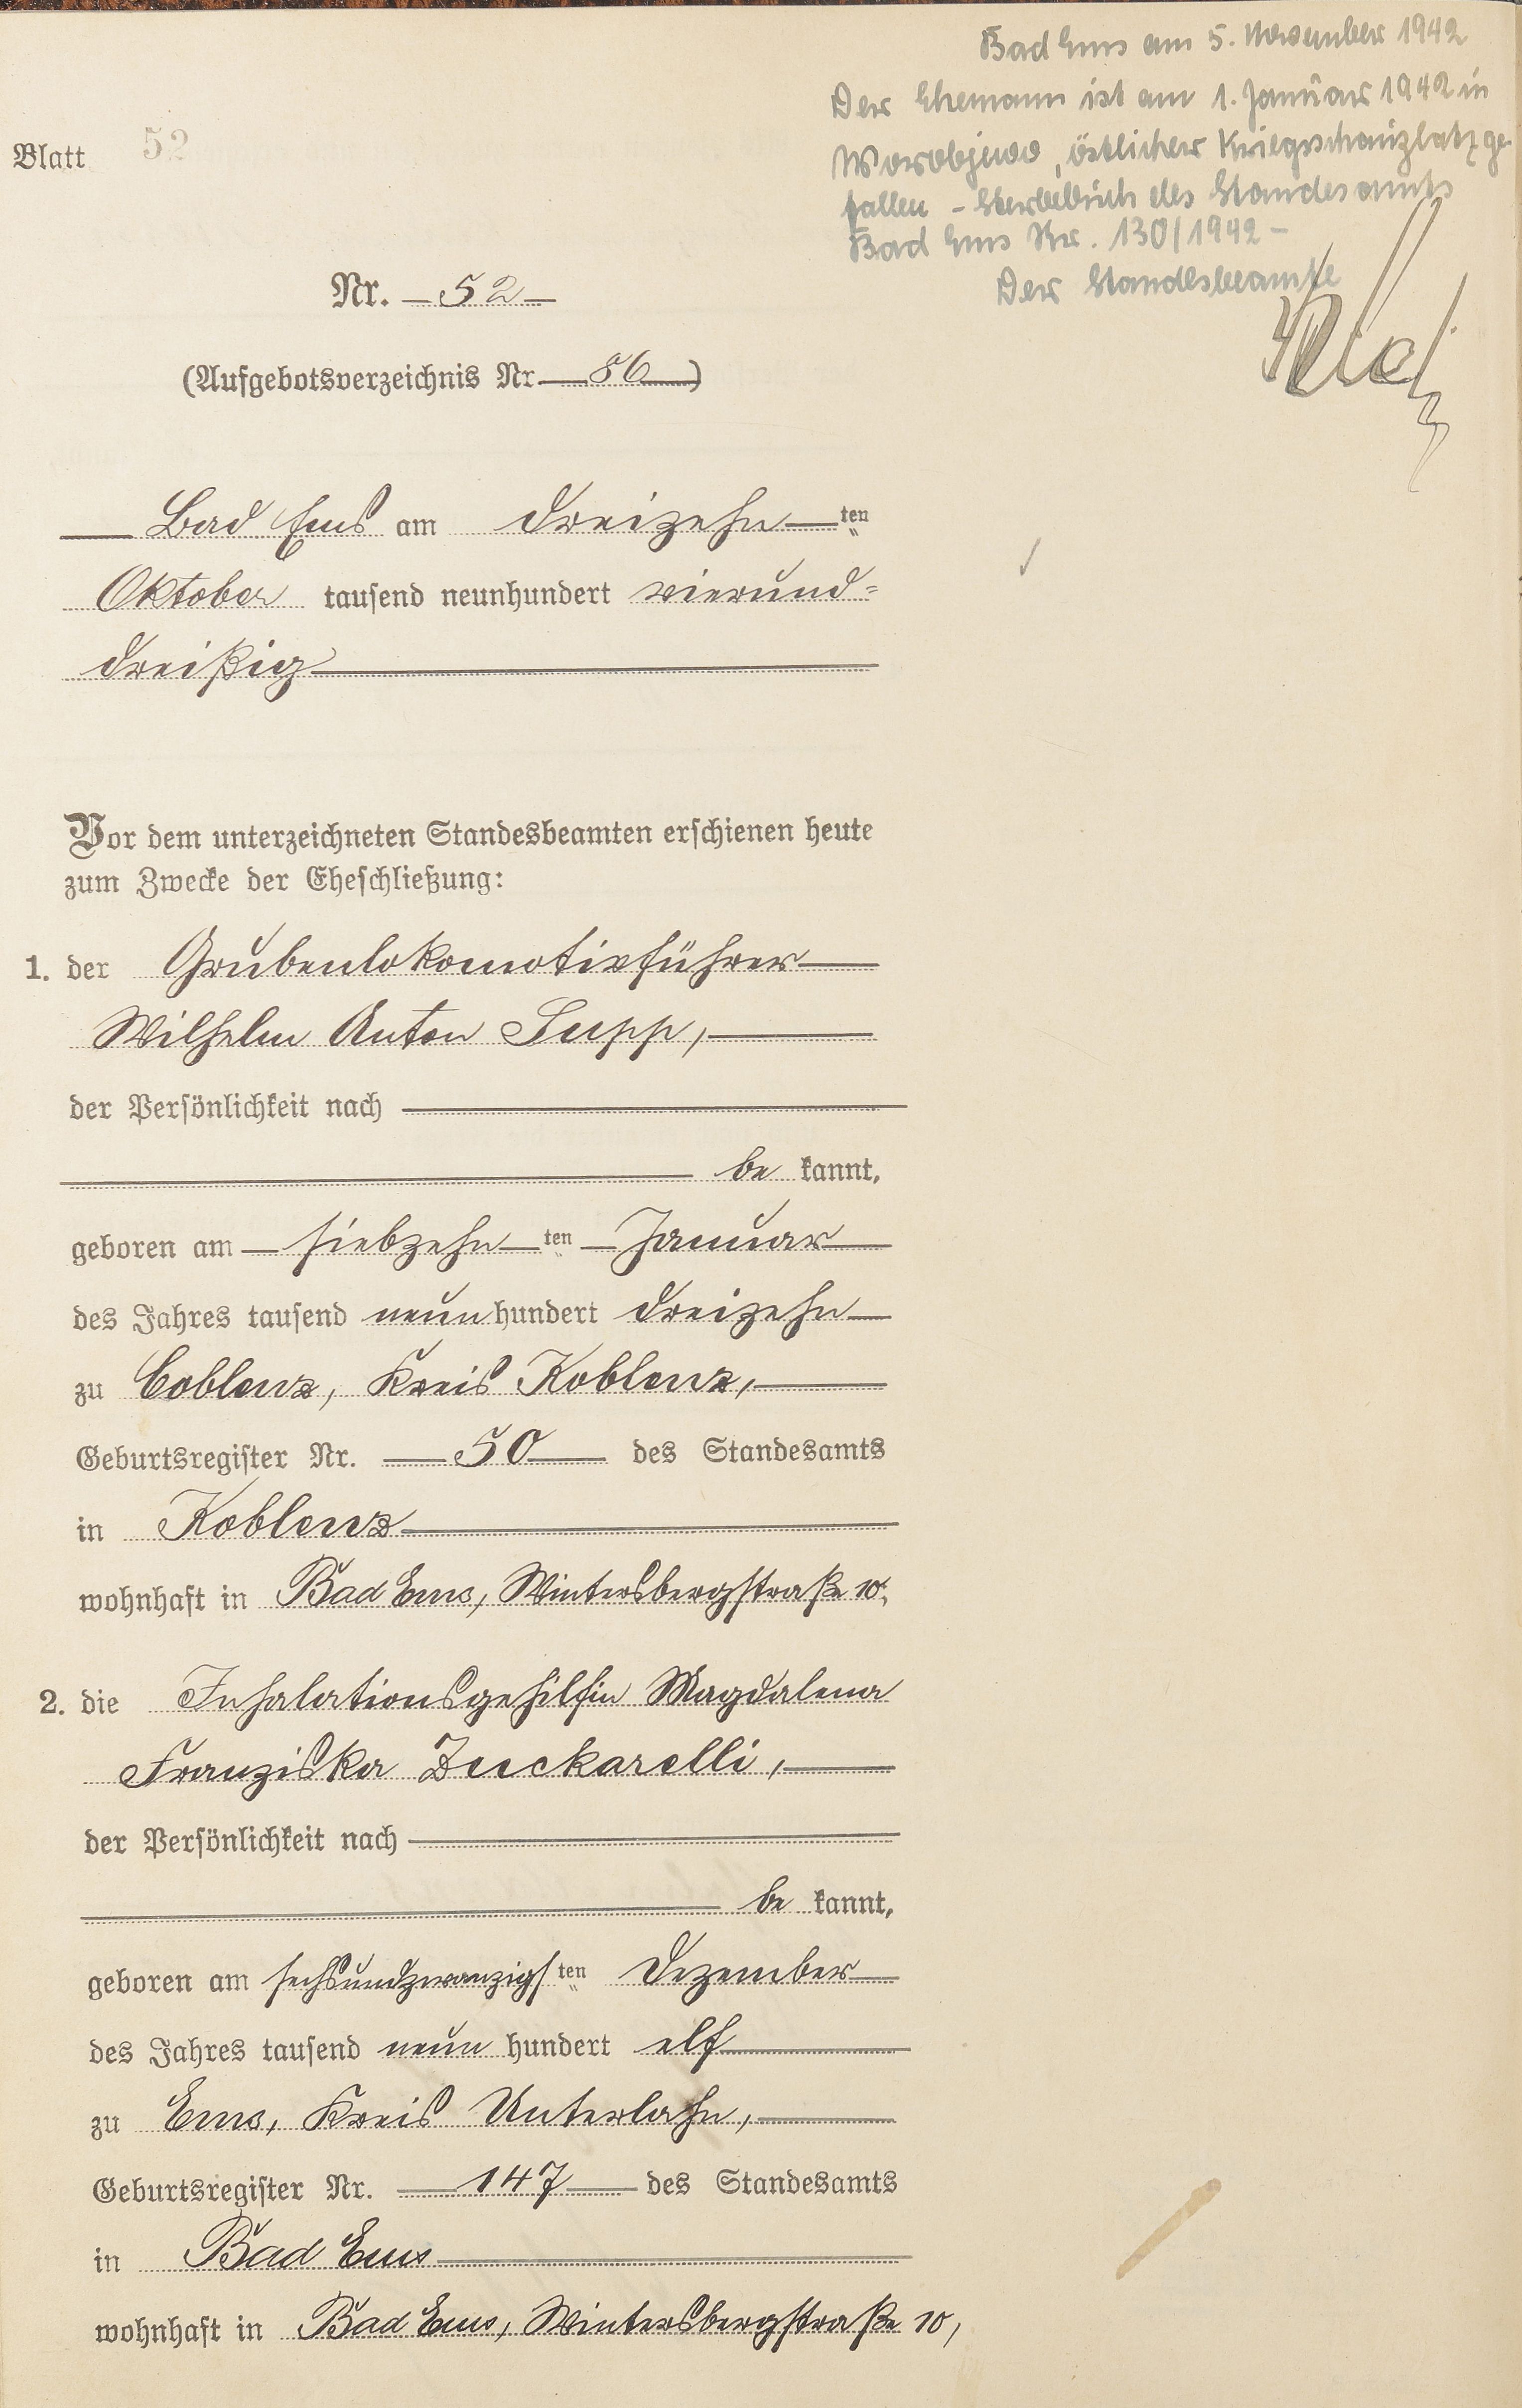 Bad Ems am 5. November 1942
Der Ehemann ist am 1. Januar 1942 in
Worobjewo, östlicher Kriegsschauplatz ge-
fallen - Sterbebuch des Standesamts
Bad Ems Nr. 130/1942 -
Der Standesbeamte
Blatt 52
Nr. 52
(Aufgebotsverzeichnis Nr. 86)
Bad Ems am dreizehn ten
Oktober tausend neunhundert vierund-
dreißig
Vor dem unterzeichneten Standesbeamten erschienen heute
zum Zwecke der Eheschließung:
1. der Grubenlokomotivführer
Wilhelm Anton Supp,
der Persönlichkeit nach
be kannt,
geboren am siebzehn ten Januar
des Jahres tausend neun hundert dreizehn
zu Coblenz, Kreis Koblenz,
Geburtsregister Nr. 50 des Standesamts
in Koblenz
wohnhaft in Bad Ems, Wintersbergstraße 10,
2. die Inhalationsgehilfin Magdalena
Franziska Zuckarelli,
der Persönlichkeit nach
be kannt,
geboren am sechsundzwanzigs ten Dezember
des Jahres tausend neun hundert elf
zu Ems, Kreis Unterlahn,
Geburtsregister Nr. 147 des Standesamts
in Bad Ems
wohnhaft in Bad Ems, Wintersbergstraße 10,